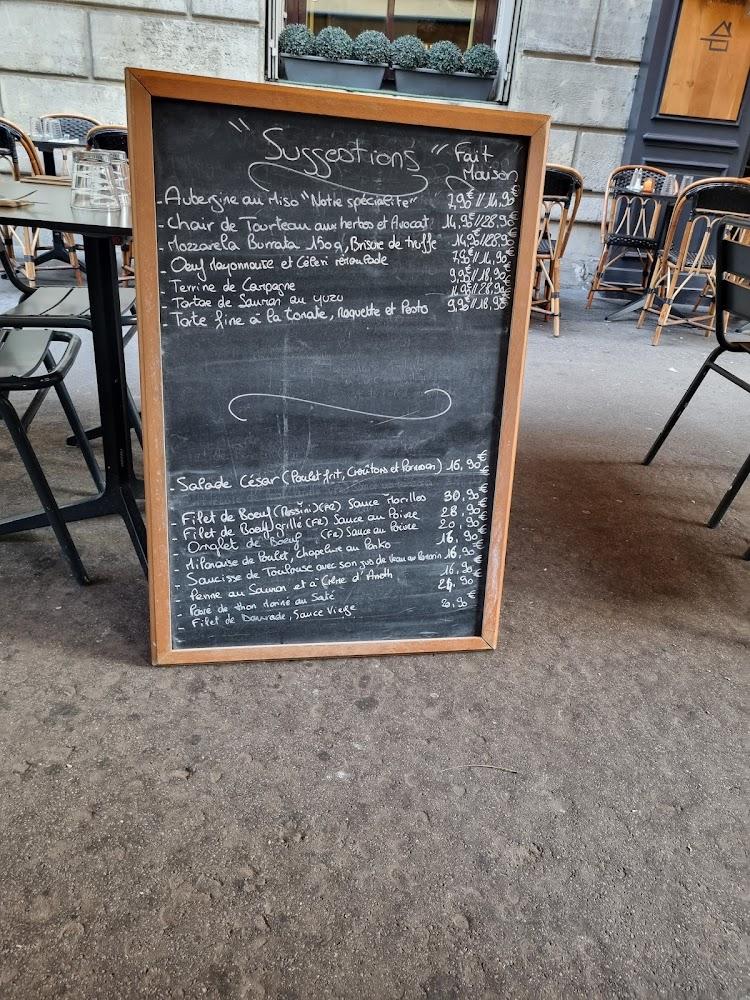 " Suggestions " Fait
Maison
- Aubergine au Miso "Notre spécialité" 7,90€ // 14,90€
- Chair de Tourteau aux herbes et Avocat 14,90€ // 28,90€
- Mozzarella Burrata 150g, Brisure de truffe 14,90€ // 28,90€
- Oeuf Mayonnaise et Céleri rémoulade 7,90€ // 14,90€
- Terrine de Campagne 9,90€ // 18,90€
- Tartare de Saumon au yuzu 14,90€ // 28,90€
- Tarte fine à la tomate, Roquette et Pesto 9,90€ // 18,90€
- Salade César (Poulet frit, Croûtons et Parmesan) 16,90€
- Filet de Boeuf (Rossini) (FR) Sauce Morilles 30,90€
- Filet de Boeuf grillé (FR) Sauce au Poivre 28,90€
- Onglet de Boeuf (FR) Sauce au Poivre 20,90€
- Milanaise de Poulet, Chapelure au Panko 16,90€
- Saucisse de Toulouse avec son jus de Veau au Romarin 16,90€
- Penne au Saumon et à Crème d'Aneth 16,90€
- Pavé de thon Mariné au Saté 24,90€
- Filet de Daurade, Sauce Vierge 20,90€